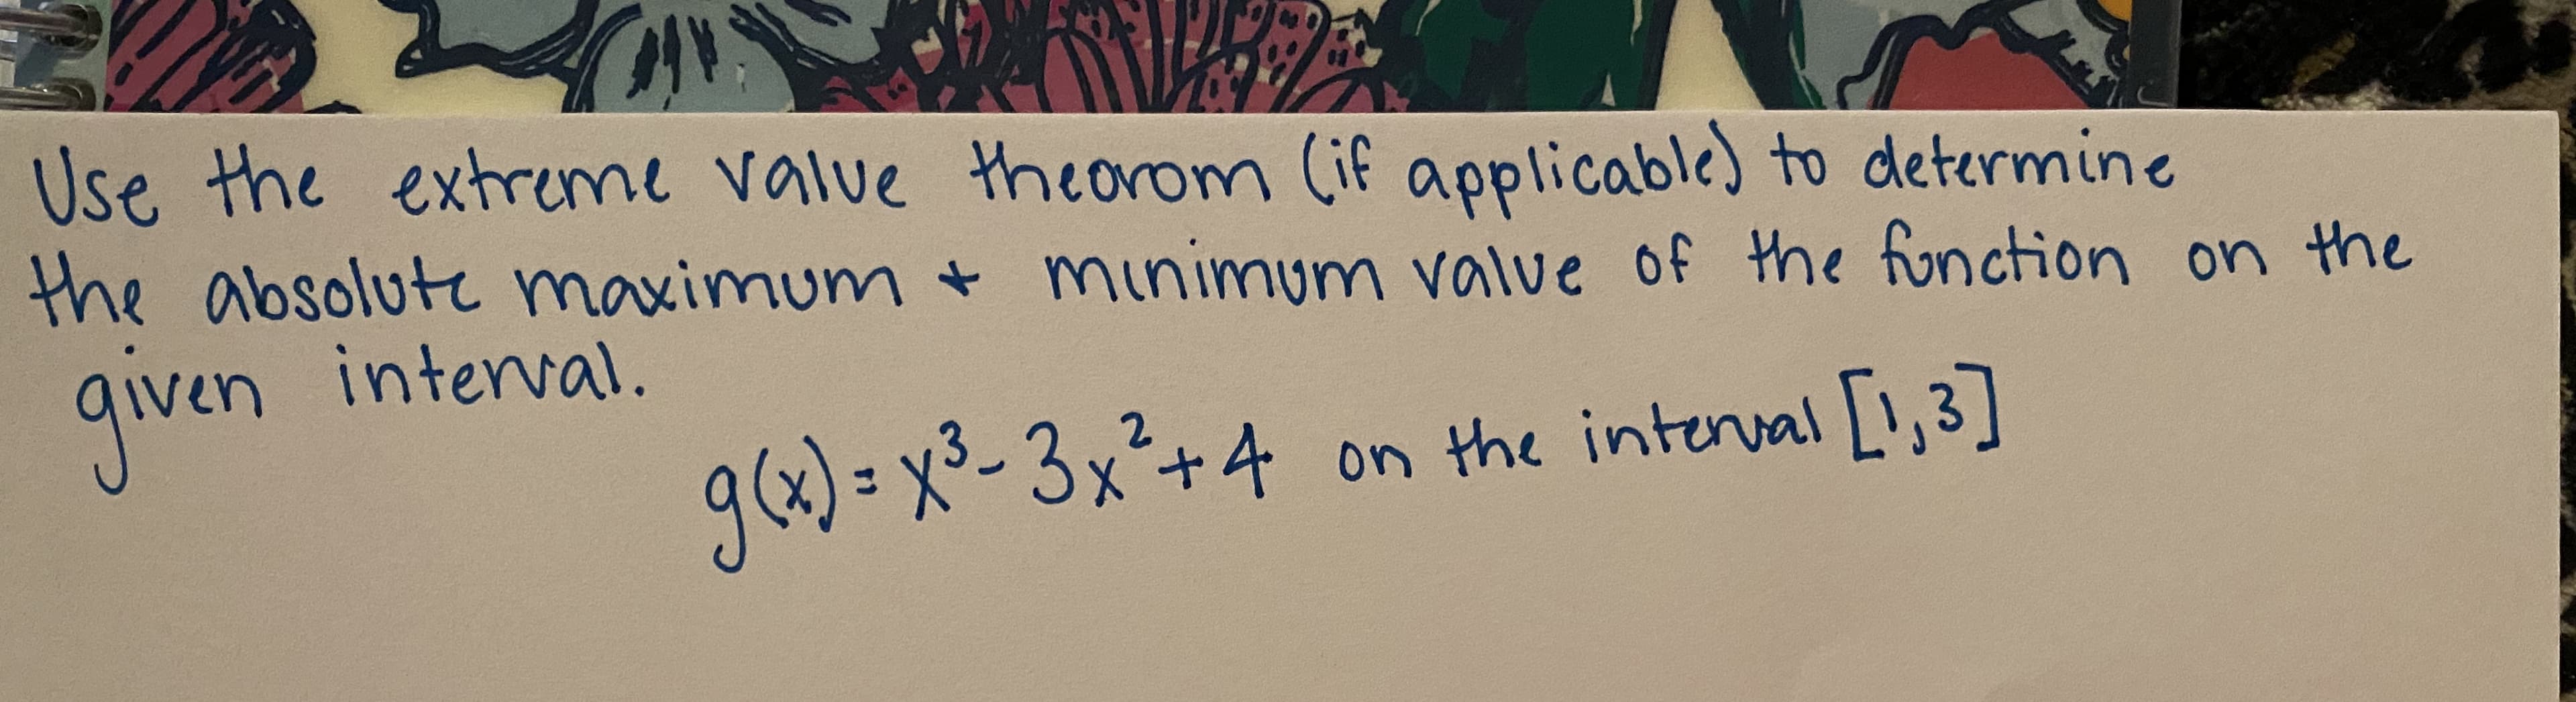 Use the extreme value theorom (if applicable) to determine
the absolute maximum + minimum value of the function on the
given interval.
g(x) = x³ - 3x² + 4 on the interval [1,3]